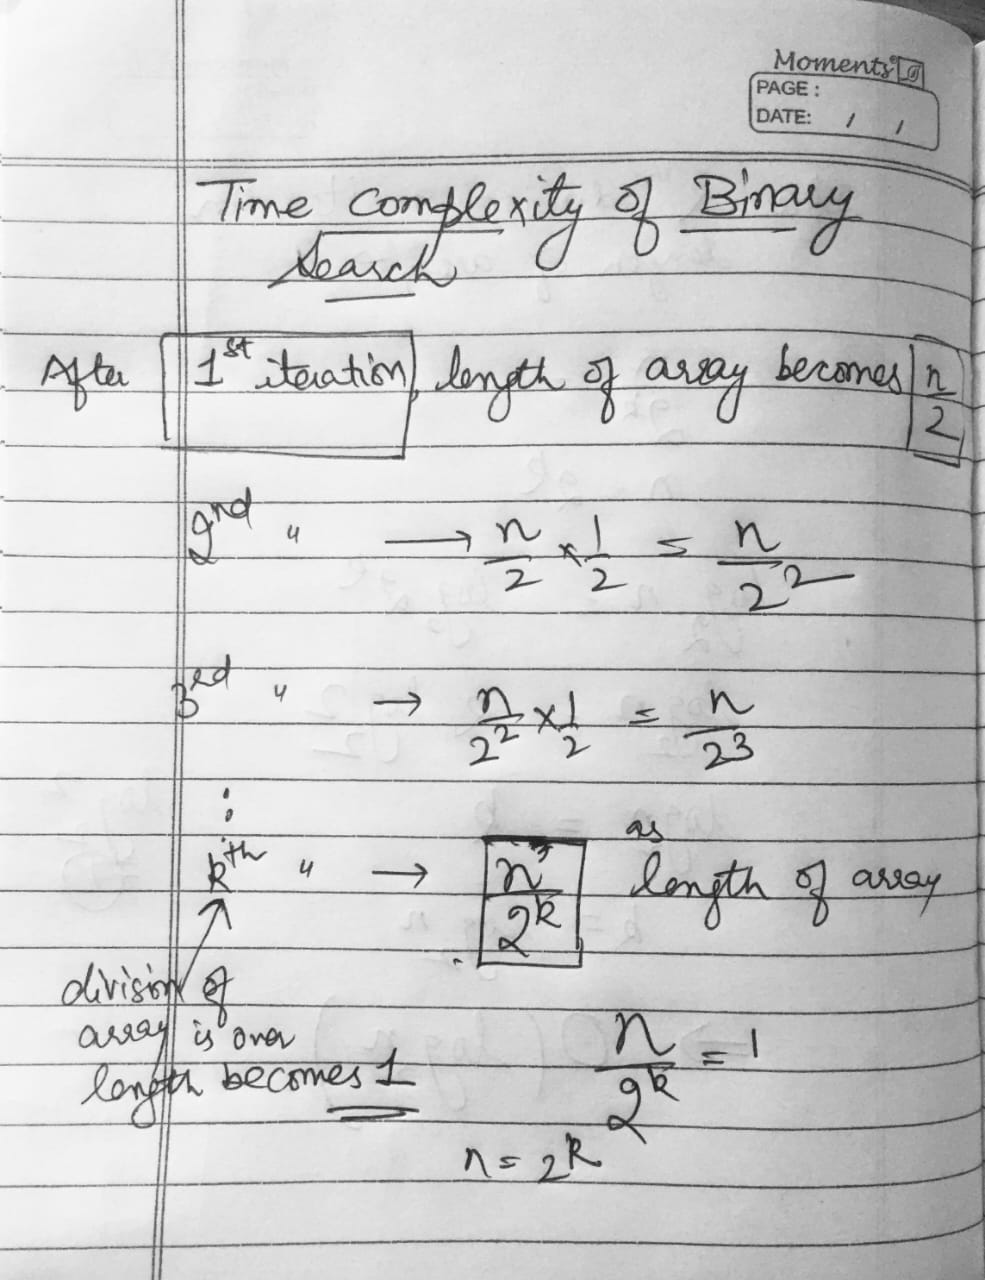 Moments
PAGE :
DATE: / /
Time Complexity of Binary
Search
After 1st iteration, length of array becomes n/2
2nd " → n/2 × 1/2 = n/2²
3rd " → n/2² × 1/2 = n/2³
:
as
kth " → n/2^k length of array
division of
array is over
length becomes 1
n/2^k = 1
n = 2^k